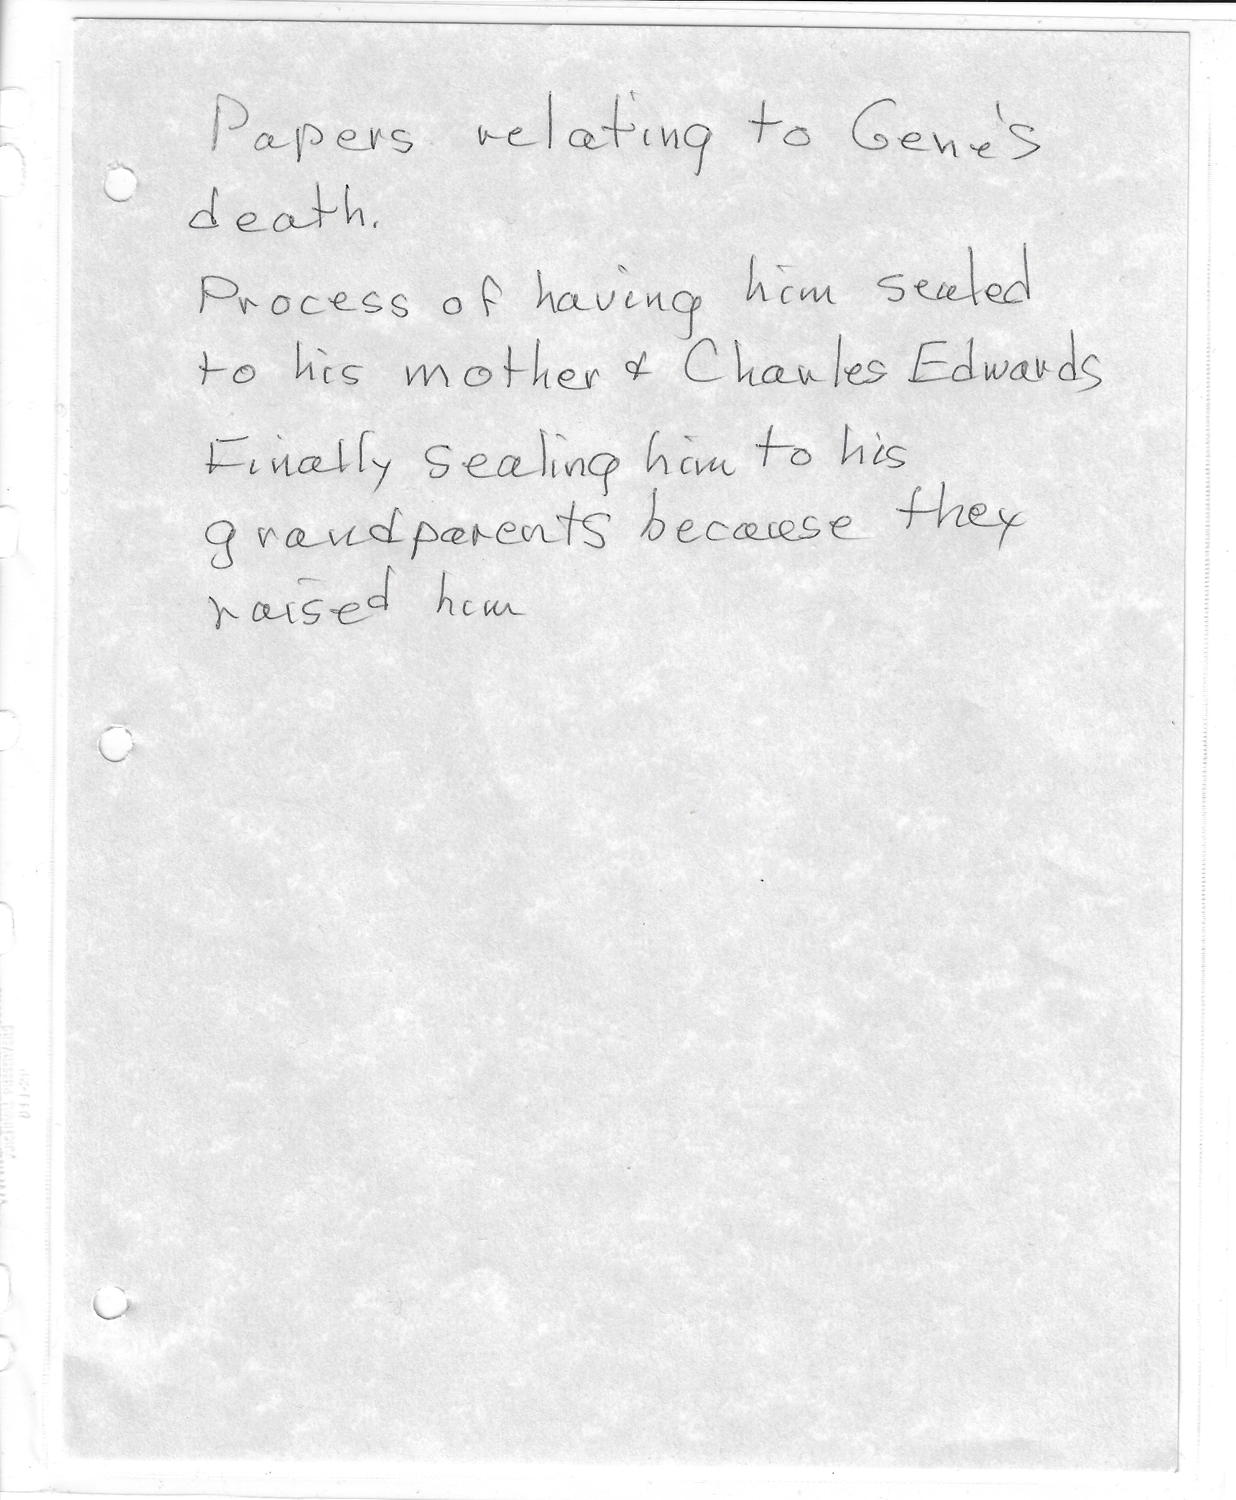 Papers relating to Gene's
death.
Process of having him sealed
to his mother & Charles Edwards
Finally sealing him to his
grandparents because they
raised him